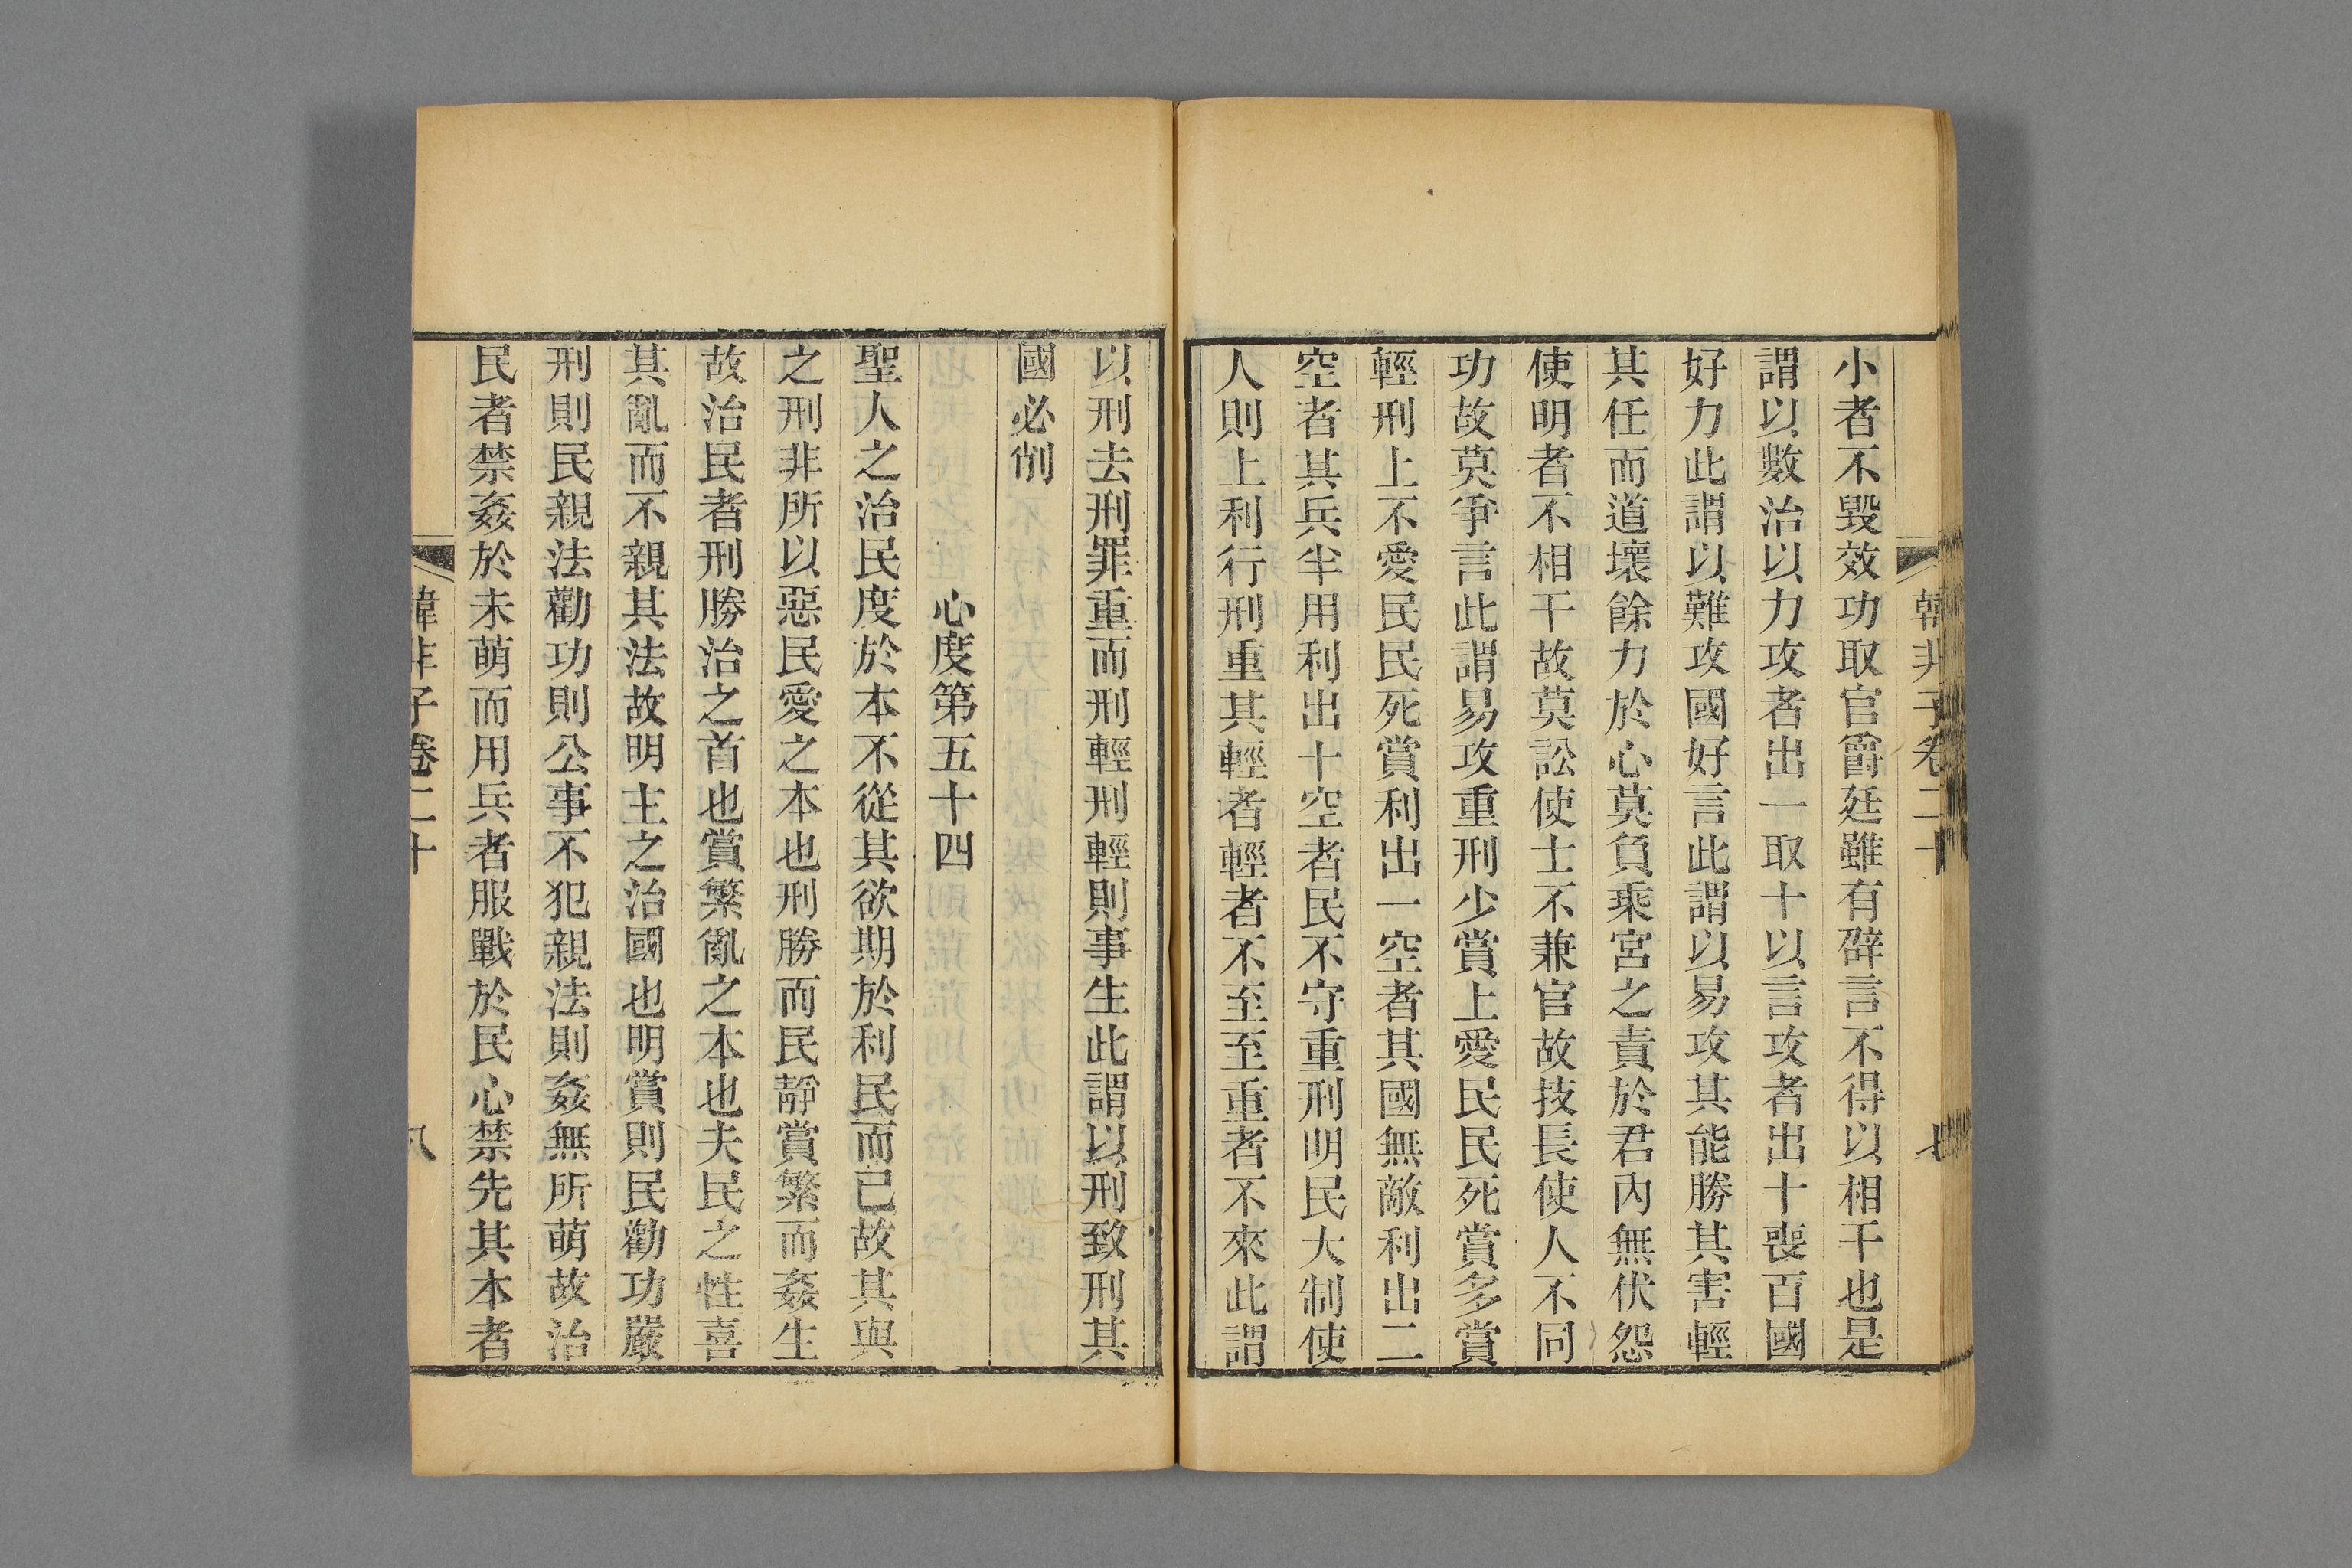 韓非子卷二十
七
小者不毀效功取官爵廷雖有辟言不得以相干也是
謂以數治以力攻者出一取十以言攻者出十喪百國
好力此謂以難攻國好言此謂以易攻其能勝其害輕
其任而道壞餘力於心莫負乘宮之責於君內無伏怨
使明者不相干故莫訟使士不兼官故技長使人不同
功故莫爭言此謂易攻重刑少賞上愛民民死賞多賞
輕刑上不愛民民死賞利出一空者其國無敵利出二
空者其兵半用利出十空者民不守重刑明民大制使
人則上利行刑重其輕者輕者不至至重者不來此謂
以刑去刑罪重而刑輕刑輕則事生此謂以刑致刑其
國必削
心度第五十四
聖人之治民度於本不從其欲期於利民而已故其與
之刑非所以惡民愛之本也刑勝而民靜賞繁而姦生
故治民者刑勝治之首也賞繁亂之本也夫民之性喜
其亂而不親其法故明主之治國也明賞則民勸功嚴
刑則民親法勸功則公事不犯親法則姦無所萌故治
民者禁姦於未萌而用兵者服戰於民心禁先其本者
韓非子卷二十
八